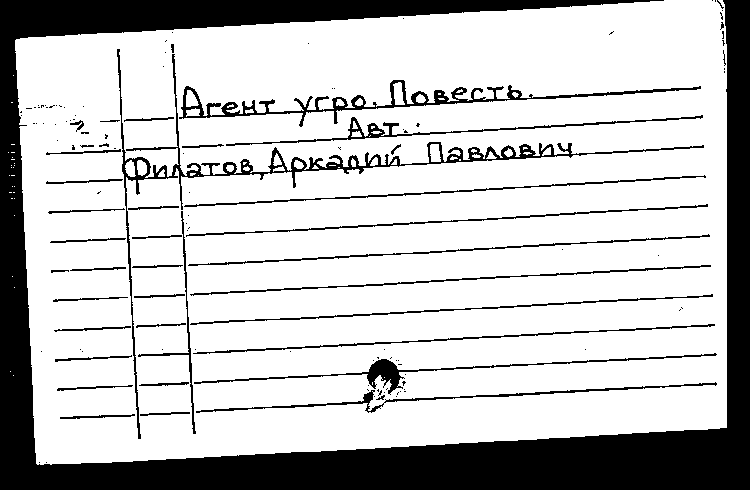 Агент угро. Повесть.
Авт.:
Филатов, Аркадий Павлович